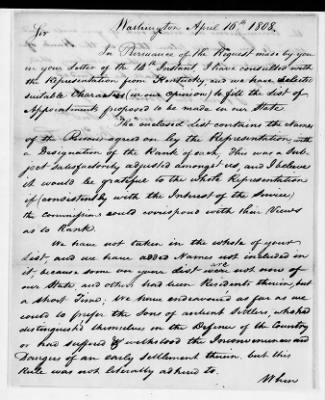 Washington April 16th 1808.
Sir
In Pursuance of the Request made by you
in your Letter of the 14th Instant, I have consulted with
the Representation from Kentucky, and we have selected
suitable Characters (in our opinion) to fill the list of
Appointments proposed to be made in our State.
The enclosed List contains the Names
of the Persons agreed on by the Representation, with
a Designation of the Rank of each. This was a Sub-
ject Satisfactorily adjusted amongst us, and I believe
it would be grateful to the whole Representation
if (consistent by with the Interest of the Service)
the Commissions could correspond with their Views
as to Rank.
We have not taken in the whole of your
List, and we have added Names not included in
it, because some on your List were not now of
our State, and others had been Residents therein, but
a short Time; We have endeavour'd as far as we
could to prefer the Sons of antient Settlers, who had
distinguished themselves in the Defence of the Country
or had suffered & withstood the Inconveniences and
Dangers of an early settlement therein, but this
Rule was not literally adhered to.
When